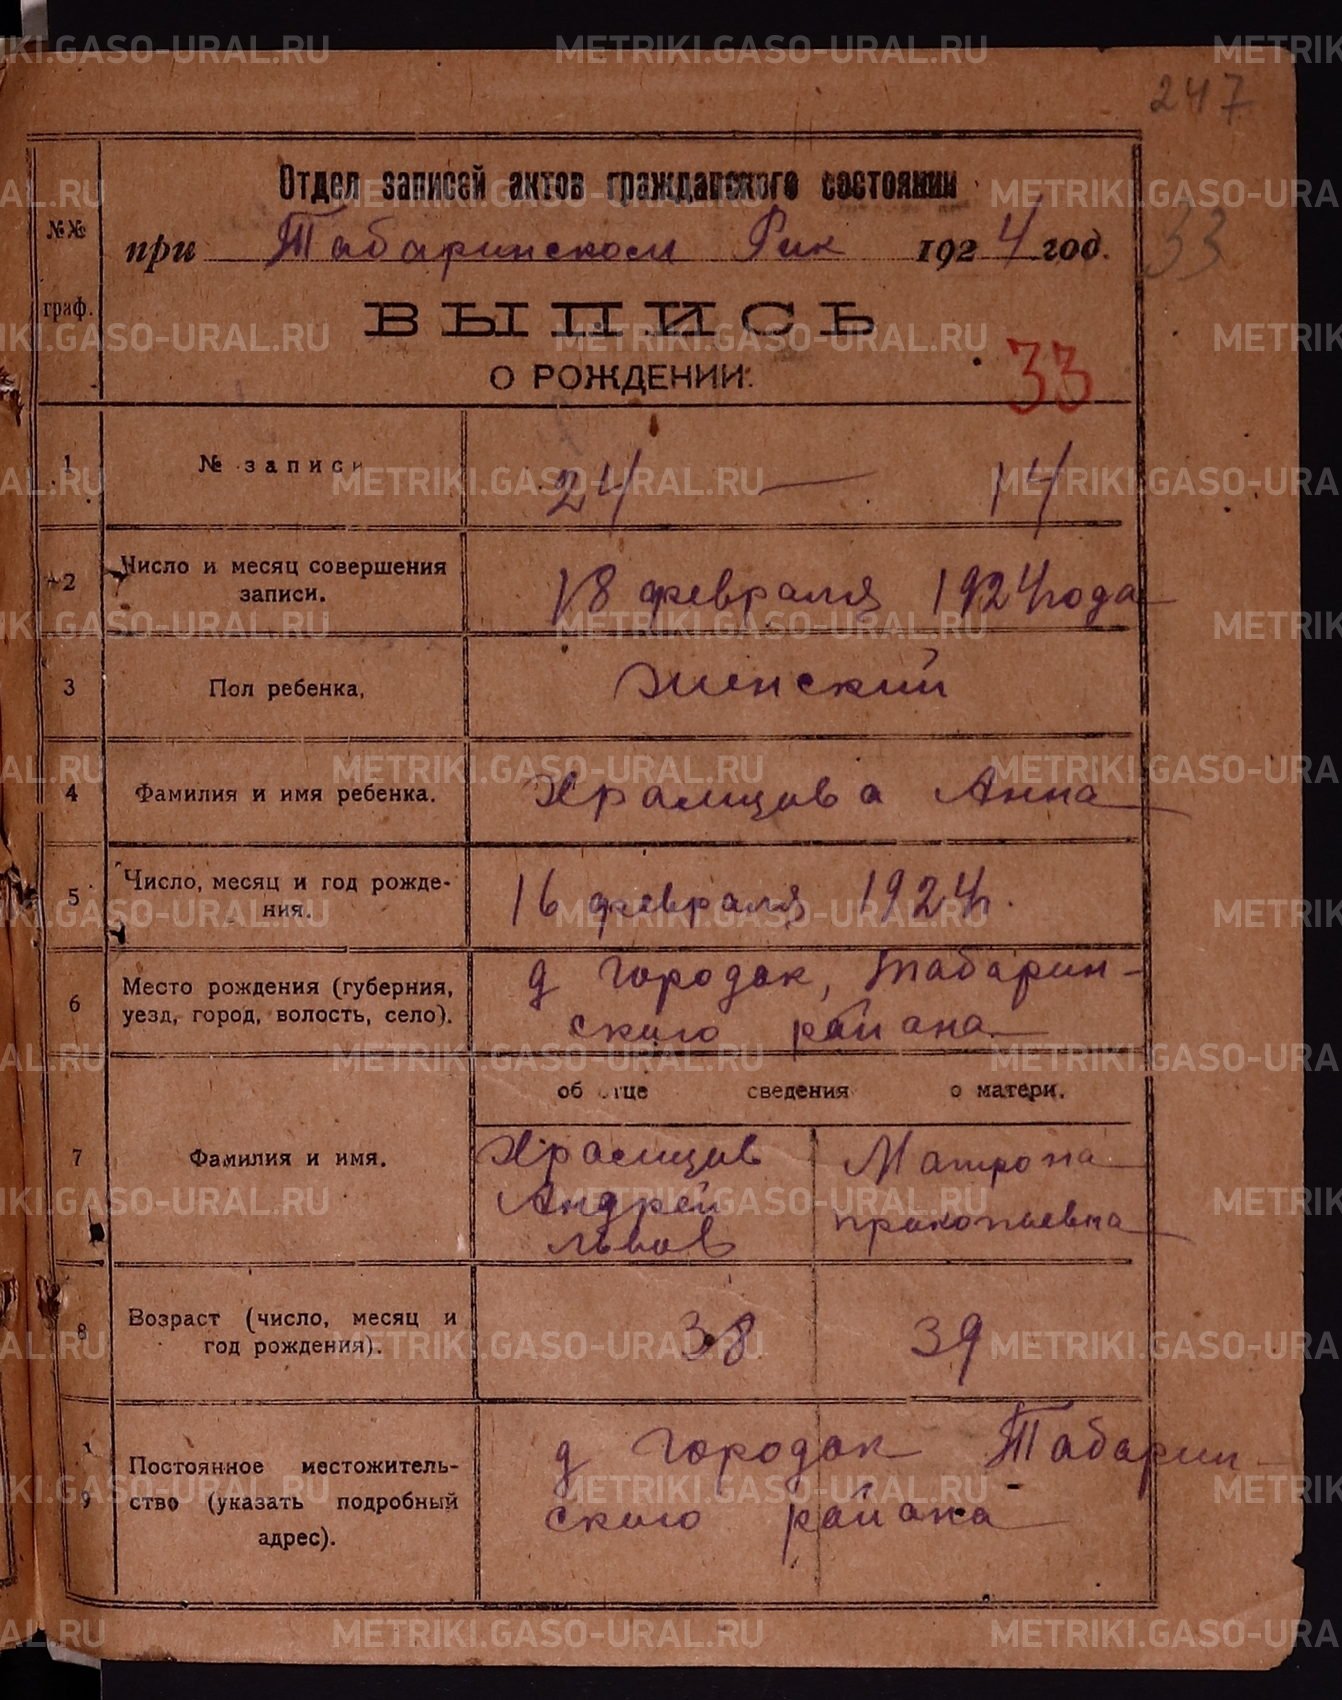 247
Отдел записей актов гражданского состояния
№№ граф.
при Табаринском Рик 1924 год.
33
ВЫПИСЬ
О РОЖДЕНИИ.
33
1 № записи 24 — 14
2 Число и месяц совершения записи. 18 февраля 1924 года
3 Пол ребенка, Женский
4 Фамилия и имя ребенка. Храмцова Анна
5 Число, месяц и год рожде-
ния. 16 февраля 1924 г.
6 Место рождения (губерния,
уезд, город, волость, село). д Городок, Табарин-
ского района
об отце сведения о матери.
7 Фамилия и имя. Храмцов
Андрей
Львов
Матрона
прокопьевна
8 Возраст (число, месяц и
год рождения). 38 39
9 Постоянное местожитель-
ство (указать подробный
адрес). д Городок Табарин-
ского района
METRIKI.GASO-URAL.RU